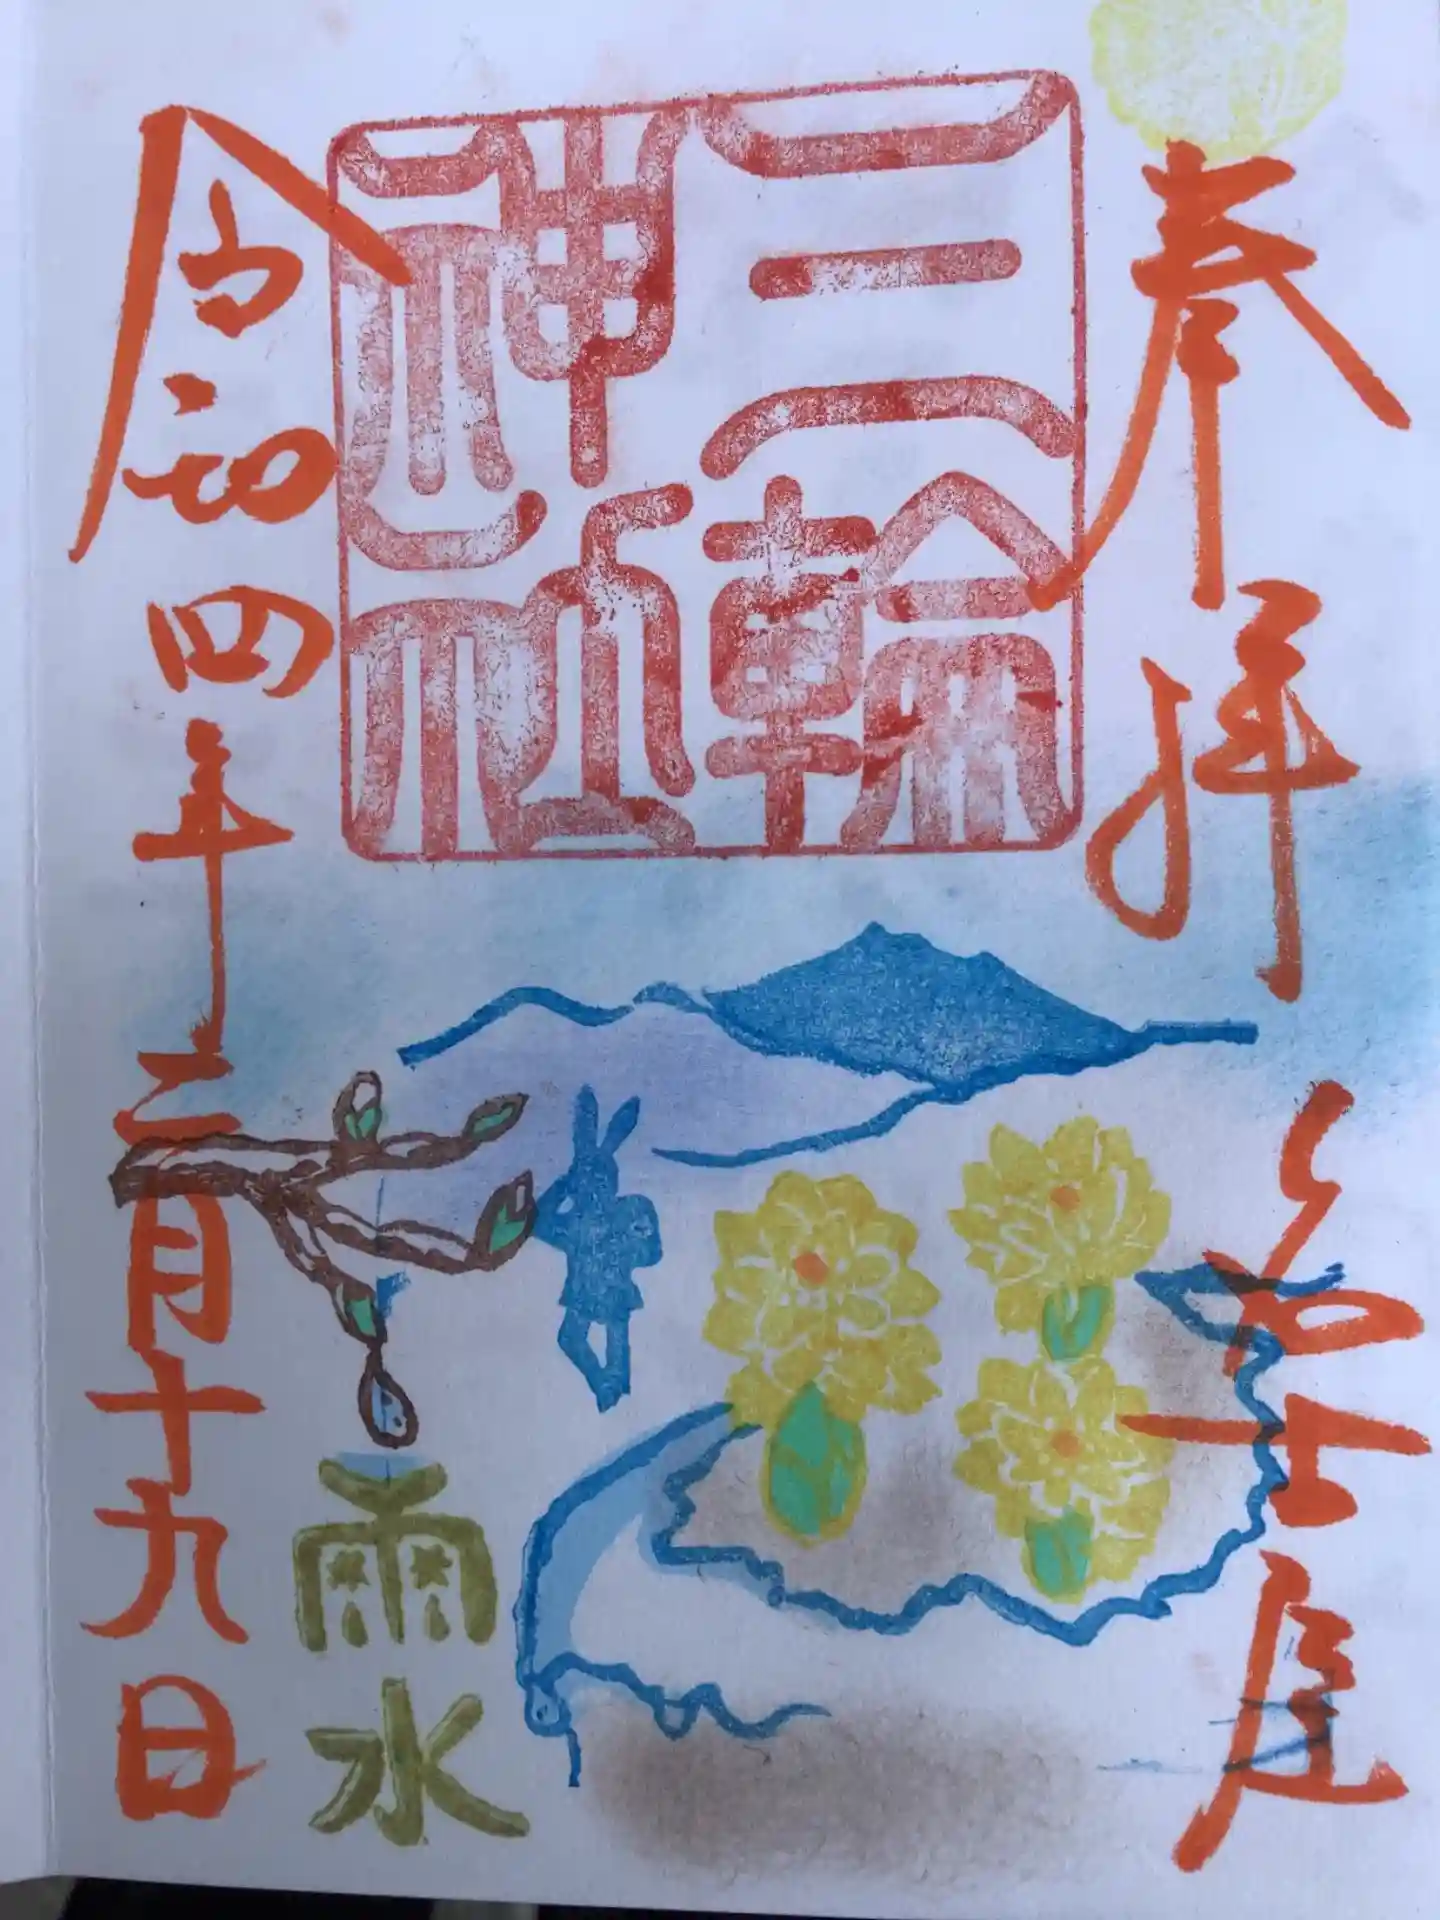 奉拝 名古屋
三輪
神社
雨水
令和四年二月十九日